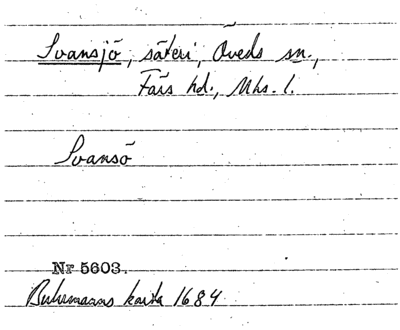 Svansjö, säteri, Öveds sn.,
Färs hd., Mhs. l.
Svansö
Nr 5603.
Buhrmanns karta 1684